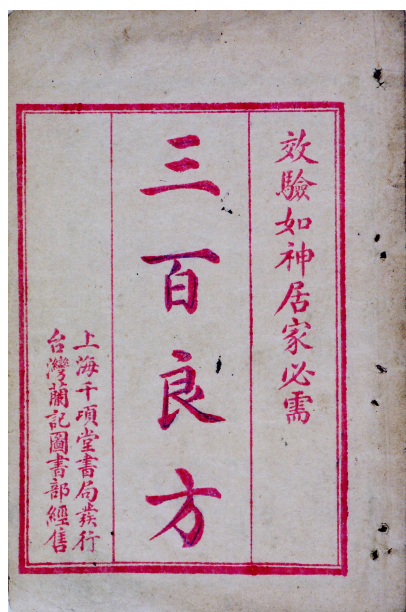 效驗如神居家必需
三百良方
上海千頃堂書局發行
台灣蘭記圖書部經售